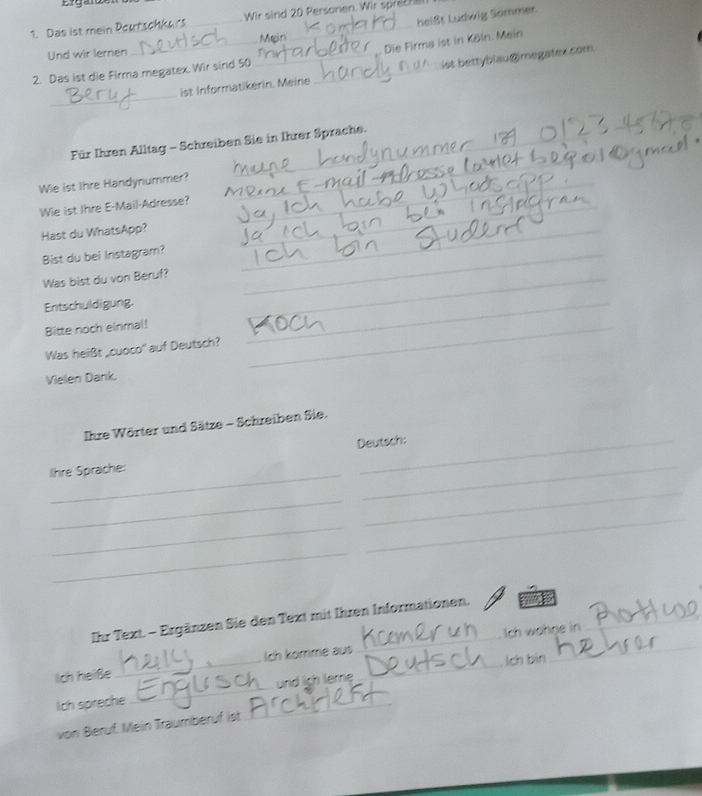 1. Das ist mein Deutschkurs. Wir sind 20 Personen. Wir sprechen
Und wir lernen Deutsch. Mein Komlard heißt Ludwig Sommer.
2. Das ist die Firma megatex. Wir sind 50 mitarbeiter. Die Firma ist in Köln. Mein
Beruf ist Informatikerin. Meine handy num ist bettyblau@megatex.com.
Für Ihren Alltag – Schreiben Sie in Ihrer Sprache.
Wie ist Ihre Handynummer? meine handynummer ist 0123 45678
Wie ist Ihre E-Mail-Adresse? meine E-mail-Adresse
Hast du WhatsApp? Ja, Ich habe whatsapp.
Bist du bei Instagram? Ja ich bin bei instagran
Was bist du von Beruf? ich bin Student
Entschuldigung.
Bitte noch einmal!
Was heißt „cuoco“ auf Deutsch? Koch
Vielen Dank.
Ihre Wörter und Sätze – Schreiben Sie.
Ihre Sprache: Deutsch:
Ihr Text. – Ergänzen Sie den Text mit Ihren Informationen.
Ich heiße Kelly. Ich komme aus Kamerun. Ich wohne in
Ich spreche Englisch und ich lerne Deutsch. Ich bin hehrer
von Beruf. Mein Traumberuf ist Architekt